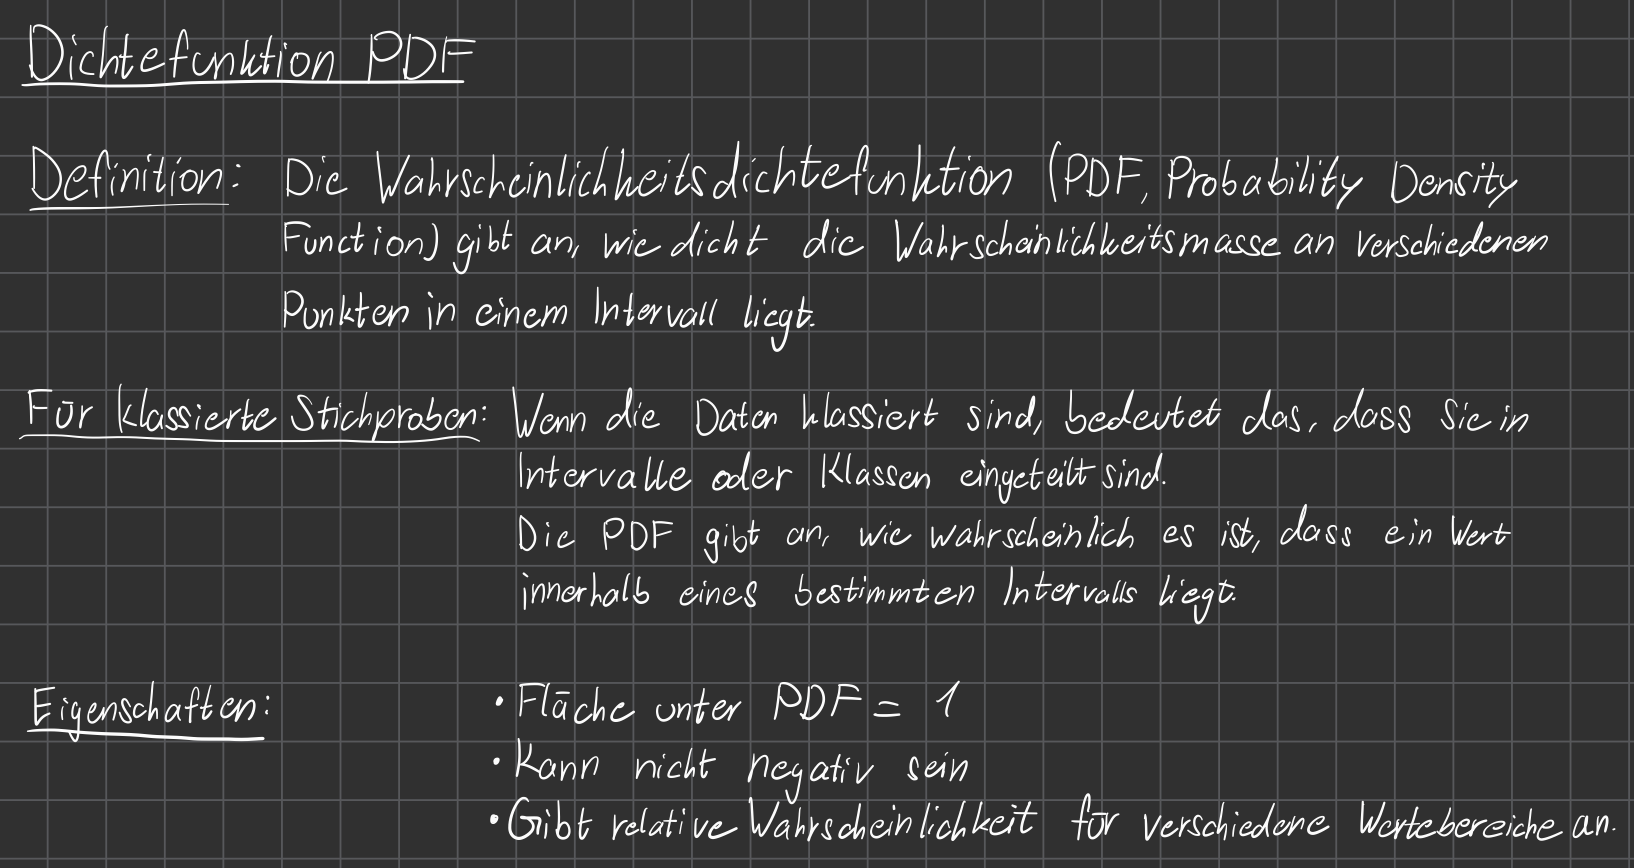 Dichtefunktion PDF
Definition: Die Wahrscheinlichkeitsdichtefunktion (PDF, Probability Density
Function) gibt an, wie dicht die Wahrscheinlichkeitsmasse an verschiedenen
Punkten in einem Intervall liegt.
Für klassierte Stichproben: Wenn die Daten klassiert sind, bedeutet das, dass sie in
Intervalle oder Klassen eingeteilt sind.
Die PDF gibt an, wie wahrscheinlich es ist, dass ein Wert
innerhalb eines bestimmten Intervalls liegt.
Eigenschaften: • Fläche unter PDF = 1
• Kann nicht negativ sein
• Gibt relative Wahrscheinlichkeit für verschiedene Wertebereiche an.